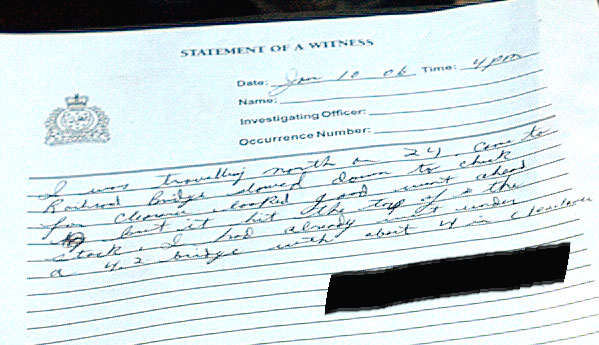 STATEMENT OF A WITNESS
Date: Jan 10 06 Time: 4 pm
Name:
Investigating Officer:
Occurrence Number:
I was travelling north on 24 come to
Railroad Bridge slowed down to check
for clearance looked good went ahead
but it hit the top of the
stack. I had already went under
a 4.2 bridge with about 4 in clearance